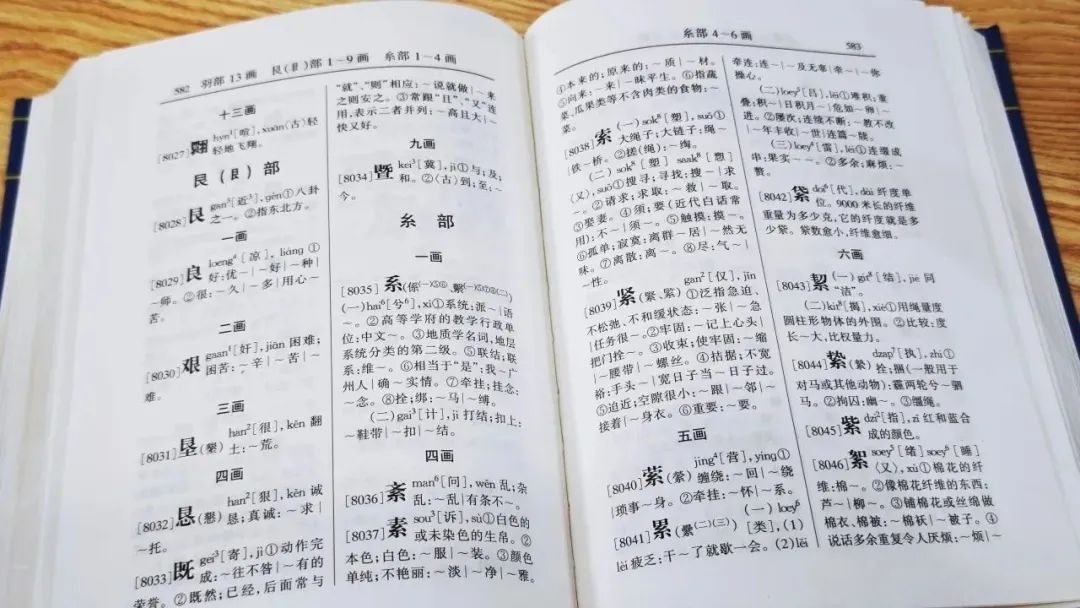 582 羽部 13 画 艮(⻏)部 1~9 画 糸部 1~4 画
十三画
[8027]翾 hyn¹[喧], xuān〈古〉轻
轻地飞翔。
艮(⻏)部
[8028]艮 gɐn³[近³], gèn①八卦
之一。②指东北方。
一画
[8029]良 loeng⁴[凉], liáng ①
好:优~|~好|~种|
~师。②很:~久|~多|用心~
苦。
二画
[8030]艰 gaan¹[奸], jiān 困难;
困苦:~辛|~苦|~
难。
三画
[8031]垦(墾) han²[很], kěn 翻
土:~荒。
四画
[8032]恳(懇) han²[狠], kěn 诚
恳;真诚:~求|
~托。
[8033]既 gei³[寄], jì①动作完
成:~往不咎|~有的
荣誉。②既然;已经,后面常与
“就”、“则”相应:~说就做|~来
之则安之。③常跟“且”、“又”连
用,表示二者并列:~高且大|~
快又好。
九画
[8034]暨 kei³[冀], jì①与;及;
和。②〈古〉到;至:~
今。
糸部
一画
[8035]系
(一)hai⁶[兮⁶], xì①系统:派~|语
~。②高等学府的教学行政单
位:中文~。③地质学名词,地层
系统分类的第二级。⑤联结;联
系:维~。⑥相当于“是”:我~广
州人|确~实情。⑦牵挂;挂念:
~念。⑧拴;绑:~马|~缚。
(二)gai³[计], jì 打结;扣上:
~鞋带|~扣|~结。
四画
[8036]紊 man⁶[问], wěn 乱;杂
乱:~乱|有条不~。
[8037]素 sou³[诉], sù①白色的
或未染色的生帛。②
本色;白色:~服|~装。③颜色
单纯;不艳丽:~淡|~净|~雅。
糸部 4~6 画 583
④本来的;原来的:~质|~材。
⑤向来:~来|~昧平生。⑥指蔬
菜、瓜果类等不含肉类的食物:~
菜。
[8038]索 (一)sok³[塑], suǒ①
大绳子;大链子:绳~
|铁~桥。②搓(绳):~绹。
(二)sok³[塑] saak³[愬]
(又), suǒ①搜寻;寻找:搜~|求
~。②请求;求取:~救|~取。
③娶妻。④须;要(近代白话常
用):不~|须~。⑤触摸:摸~。
⑥孤单;寂寞:离群~居|~然无
味。⑦离散:离~。⑧尽:气~|
~性。
[8039]紧(緊、紧) gan²[仅], jǐn
①泛指急迫、
不松弛、不和缓状态:~张|~急
|任务很~。②牢固:~记上心头|
把门拴~。③收束;使牢固:~缩
|~腰带|~螺丝。④拮据;不宽
裕:手头~|宽日子当~日子过。
⑤迫近;空隙很小:~跟|~邻|~
接着|~身衣。⑥重要:~要。
五画
[8040]萦(縈) jing⁴[营], yíng①
缠绕:~回|~绕
|琐事~身。②牵挂:~怀|~系。
[8041]累(纍(二)(三)) (一)loey⁶
[类],(1)
lèi 疲乏:干~了就歇一会。(2)lěi
牵连:连~|~及无辜|牵~|~你
操心。
(二)loey⁵[吕], lěi①堆积;重
叠:积~|日积月~|危如~卵|~
进。②屡次;连续不断:~教不改
|~年丰收|~世|连篇~牍。
(三)loey⁴[雷], léi①连缀成
串:果实~~。②多余;麻烦:~
赘。
[8042]紫 doi⁶[代], dài 纤度单
位。9000 米长的纤维
重量为多少克,它的纤度就是多
少紫。紫数愈小,纤维愈细。
六画
[8043]絜 (一)git³[结], jié 同
“洁”。
(二)kit³[揭], xié①用绳量度
圆柱形物体的外围。②比较;度:
长~大,比权量力。
[8044]絷(縶) dzap⁷[执], zhí①
拴;捆(一般用于
对马或其他动物):霾两轮兮~驷
马。②拘囚:幽~。③缰绳。
[8045]紫 dzi²[指], zǐ 红和蓝合
成的颜色。
[8046]絮 soey⁵[绪] soey⁶[睡]
(又), xù①棉花的纤
维:棉~。②像棉花纤维的东西:
芦~|柳~。③铺棉花或丝绵做
棉衣、棉被:~棉袄|~被子。④
说话多余重复令人厌烦:~烦|~